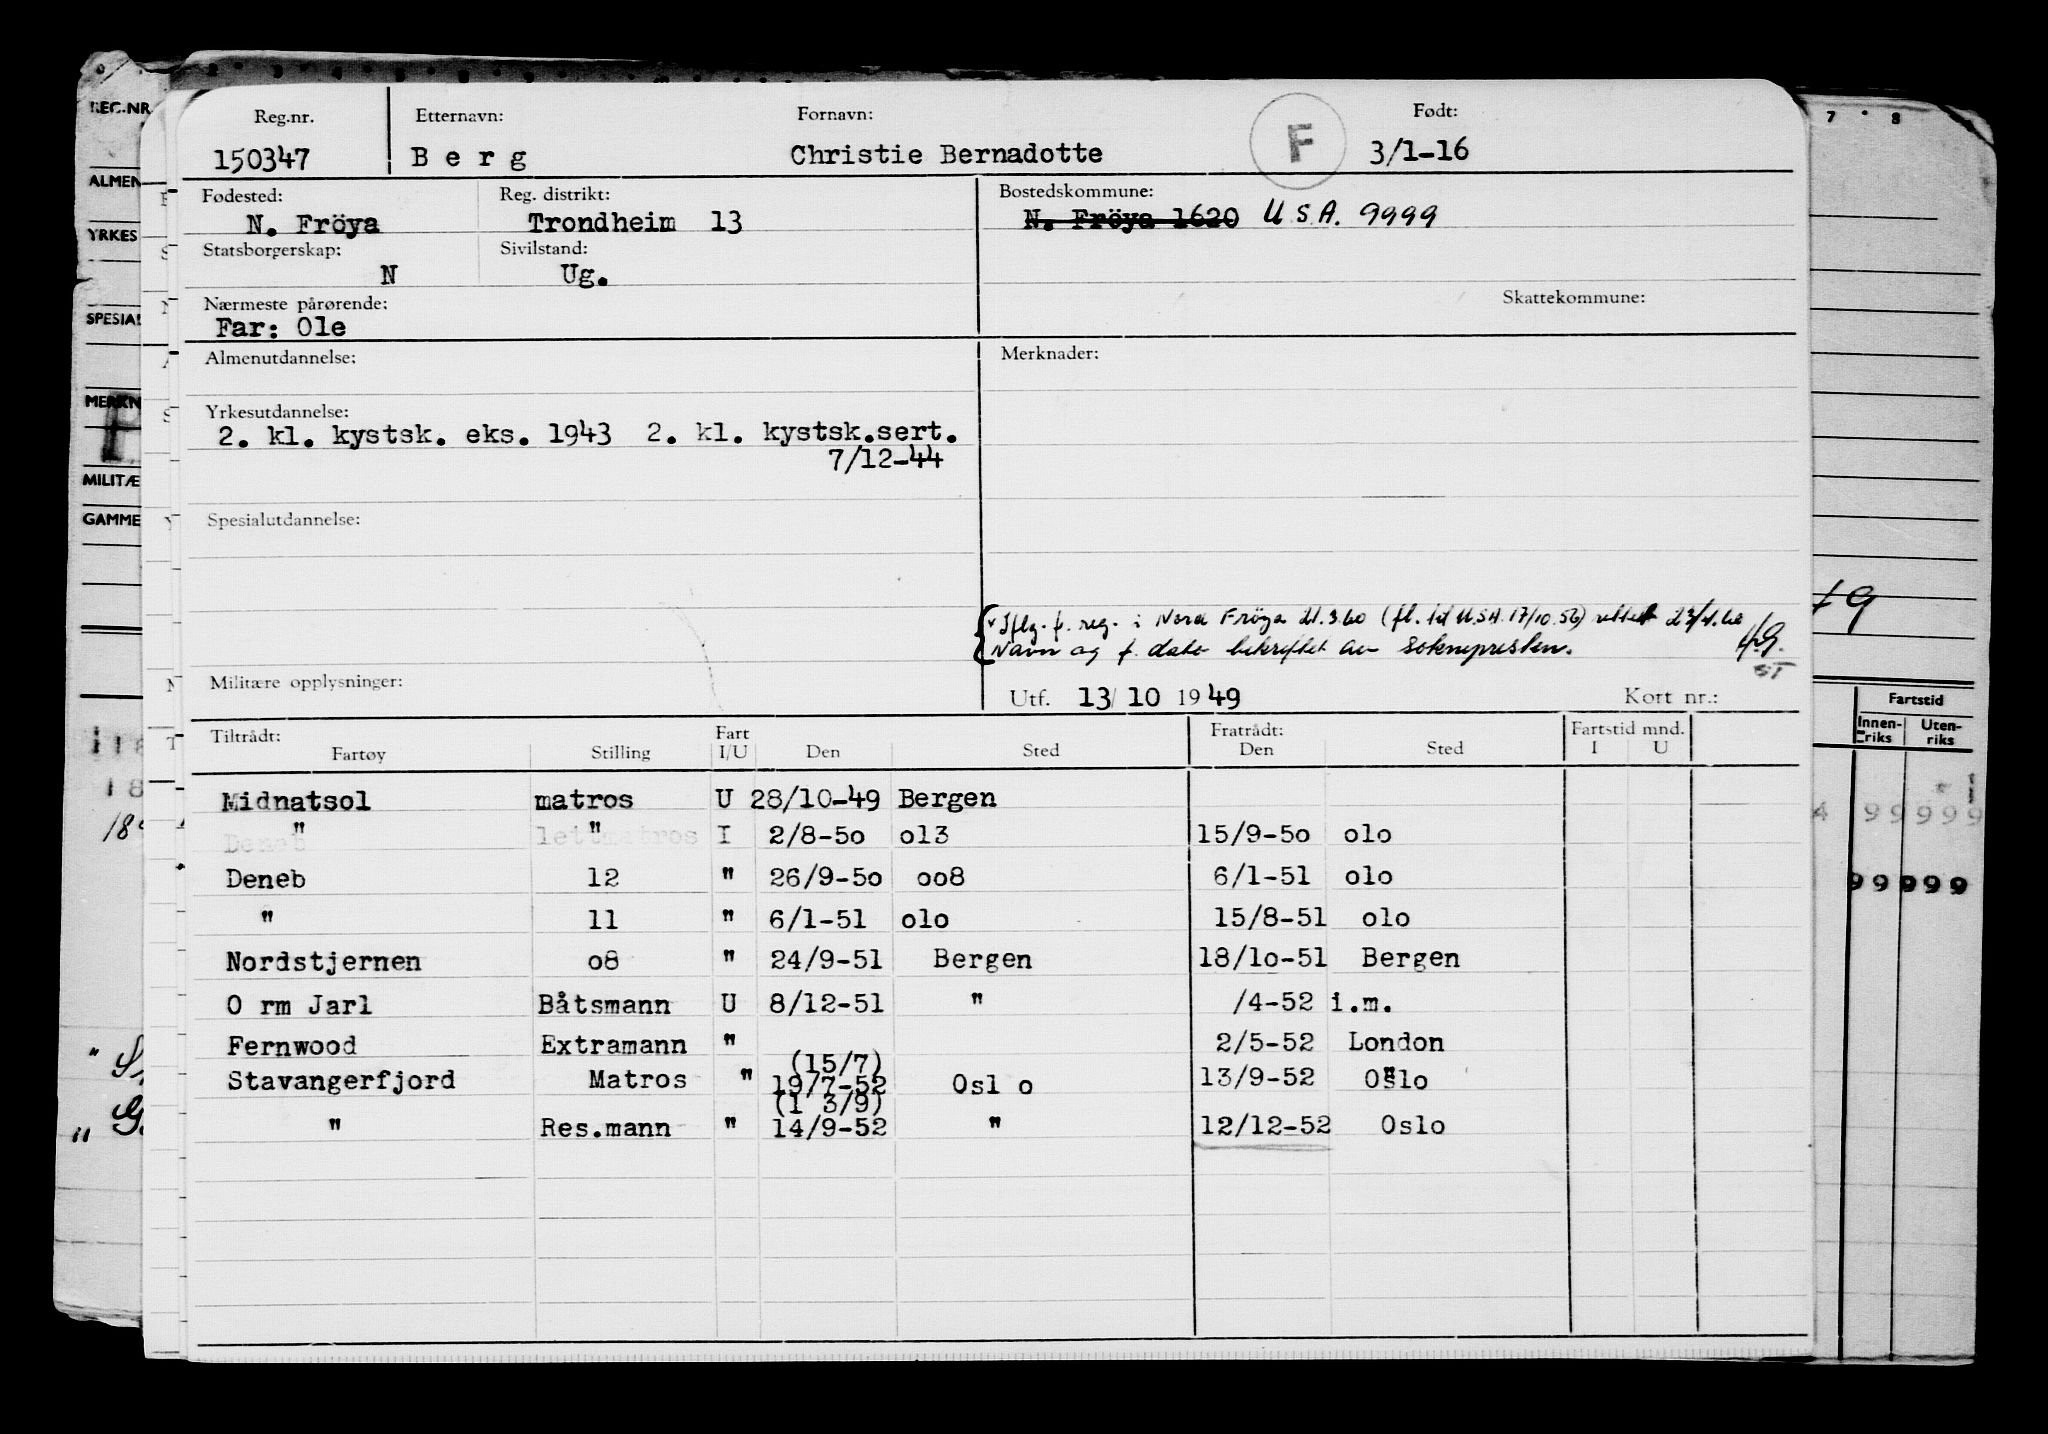 Reg.nr. Etternavn: Fornavn: Født:
150347 B e r g Christie Bernadotte F 3/1-16
Fødested: Reg. distrikt: Bostedskommune:
N. Fröya Trondheim 13 N. Fröya 1620 U.S.A. 9999
Statsborgerskap: Sivilstand:
N Ug.
Nærmeste pårørende: Skattekommune:
Far: Ole
Almenutdannelse: Merknader:
Yrkesutdannelse:
2. kl. kystsk. eks. 1943 2. kl. kystsk.sert.
7/12-44
Spesialutdannelse:
Iflg. f. reg. i Nord Fröya 21.3.60 (fl. til U.S.A. 17/10.56) rettet
Navn og f. dato bekreftet av soknepresten.
Militære opplysninger: Utf. 13/10 1949 Kort nr.:
Tiltrådt: Fart Fratrådt: Fartstid mnd.
Fartøy Stilling I/U Den Sted Den Sted I U
Midnatsol matros U 28/10-49 Bergen
" " I 2/8-5o ol3 15/9-5o olo
Deneb lettmatros
Deneb 12 " 26/9-5o oo8 6/1-51 olo
" 11 " 6/1-51 olo 15/8-51 olo
Nordstjernen o8 " 24/9-51 Bergen 18/1o-51 Bergen
O rm Jarl Båtsmann U 8/12-51 " /4-52 i.m.
Fernwood Extramann " 2/5-52 London
(15/7)
Stavangerfjord Matros " 19/7-52 Osl o 13/9-52 Oslo
(1 3/9)
" Res.mann " 14/9-52 " 12/12-52 Oslo
REG.NR
ALMEN
YRKES
SPESIAL
MERKN
MILITÆ
GAMME
7 8
Fartstid
Innen-
riks
Uten-
riks
99999
99999